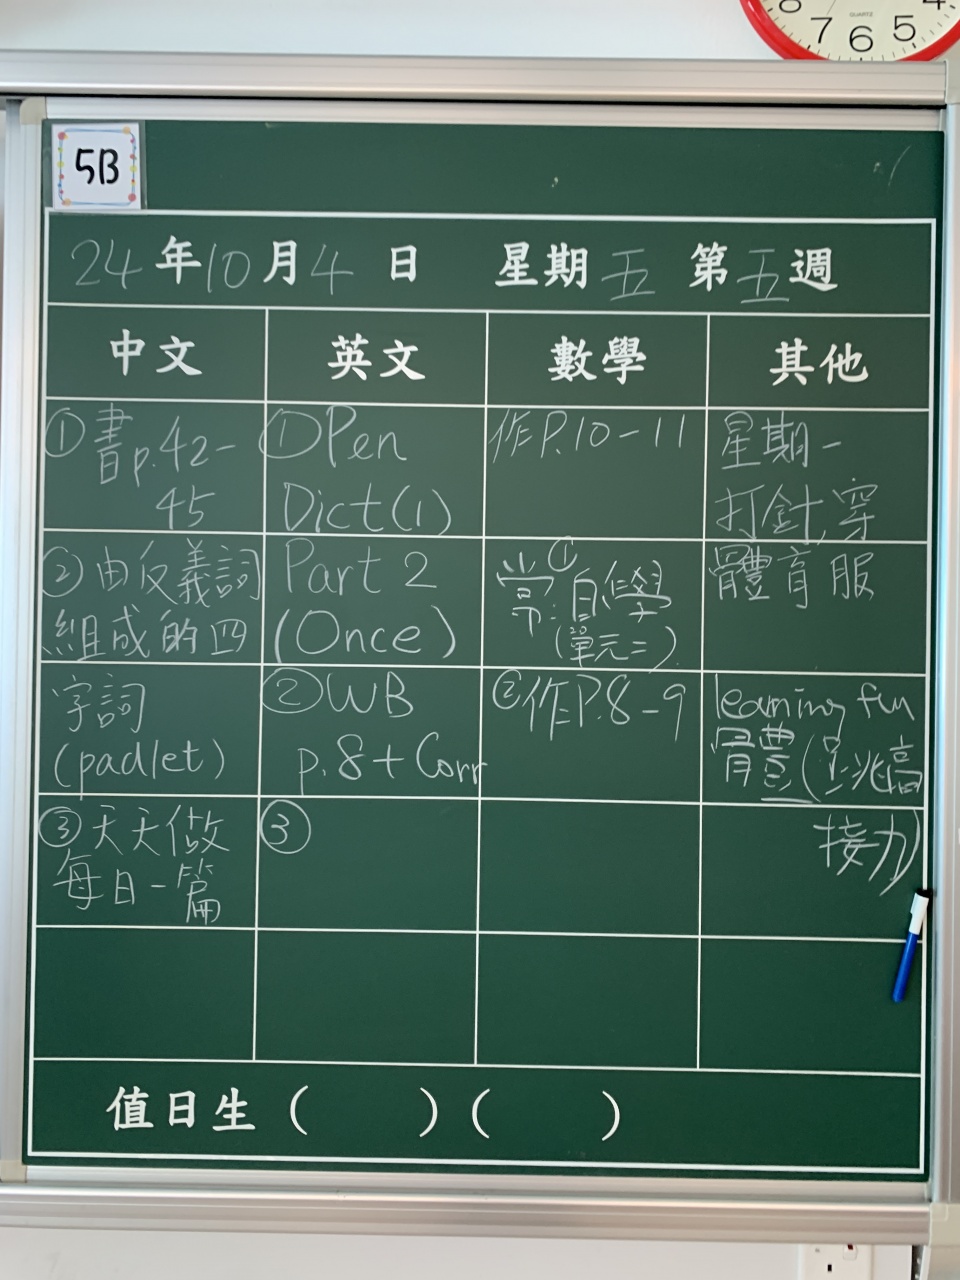 8 7 6 5 4
QUARTZ
5B
24年10月4日 星期五 第五週
中文
①書p.42-
45
②由反義詞
組成的四
字詞
(padlet)
③天天做
每日一篇
英文
①Pen
Dict(1)
Part 2
(Once)
②WB
p.8+Corr
③
數學
作P.10-11
常:①自學
(單元二)
②作P.8-9
其他
星期一
打針,穿
體育服
learning fun
體豊(跳高
接力)
值日生( )( )